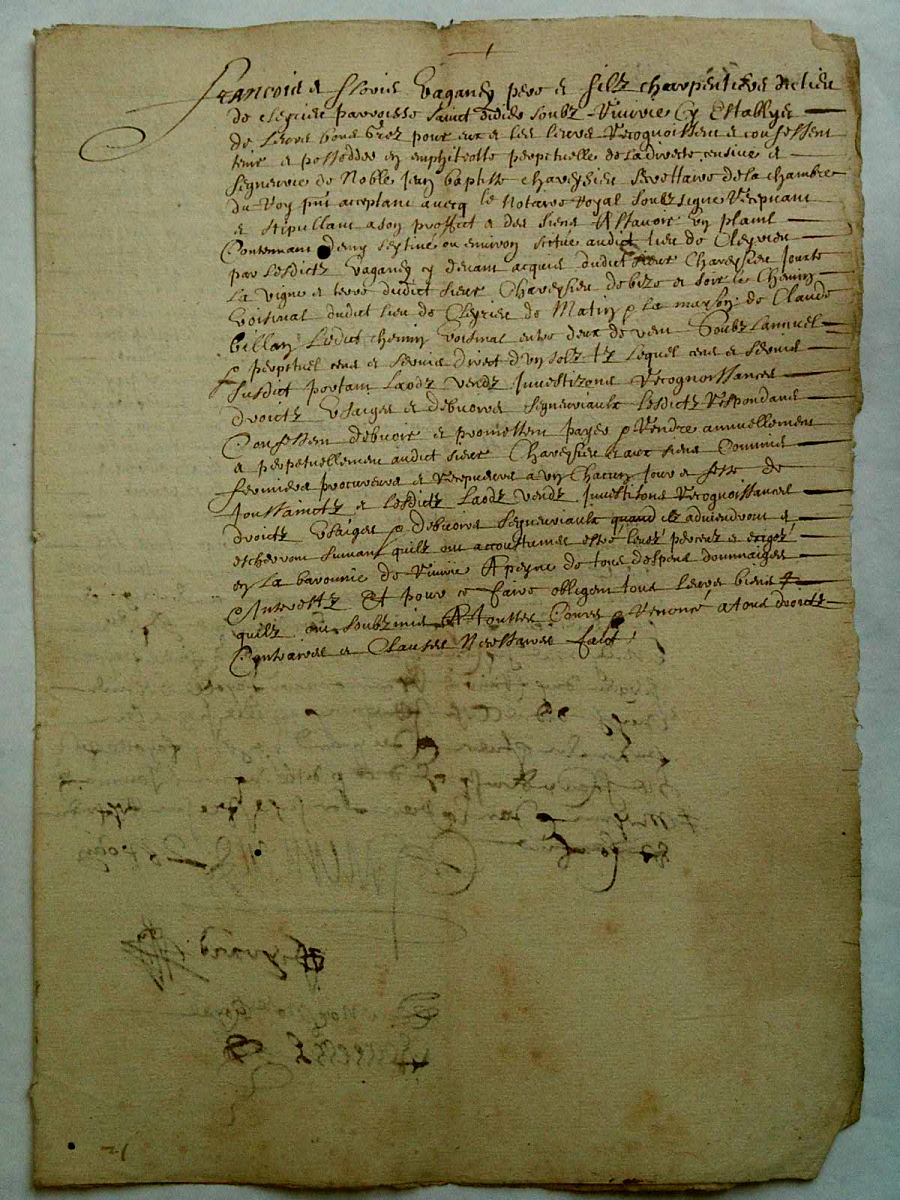 François et Floris Vaganey pere et filz charpentiers du lieu
de Cleyrieu parroisse Sainct Didier soubz Riverie Cy Establys
de leurs bons grez pour eux et les leurs Recognoissent et confessent
tenir et posseder en emphiteotte perpetuelle de la directe censive et
seigneurie de Noble Jean baptiste Chareysieu secrettaire de la chambre
du Roy sint acceptant avecq le Notaire Royal soubzsigne Recepvant
et stipullant a son proffict et des siens Assavoir un plaint
Contenant demy septive ou environ sictué audict lieu de Cleyrieu
par lesdictz Vaganey cy devant acquis dudict sieur Chareysieu Jouxte
la vigne et terre dudict sieur Chareysieu de bize et soir le Chemin
Voisinal dudict lieu de Cleyrieu de Matin et la maison de Claude
billan ledict chemin voisinal entre deux de vent Soubz lannuel
et perpetuel cens et servis direct d'un solz tz lequel cens et servis
susdict portant laodz vendz Investizons Recognoissances
droictz Usaiges et debvoirs seigneuriaulx lesdictz Respondans
Confessent debvoir et promettent payer et Rendre annuellement
et perpetuellement audict sieur Chareysieu et aux siens Commis
fermiers procureurs et Recepveurs a un Chacun Jour et feste de
Toussainctz et lesdictz laodz vendz Investisons Recognoissances
droictz Usaiges et debvoirs seigneuriaulx quand ilz adviendront et
escherront suivant quilz ont accoustumes estre levez perceuz et exigez
en la baronnie de Riverie A peyne de tous despens dommaiges
et Interestz Et pour ce faire obligent tous leurs biens
quilz ont soubzmis A touttes Cours et Renoncé a tous droictz
Contraires et Clauses Necessaires faict